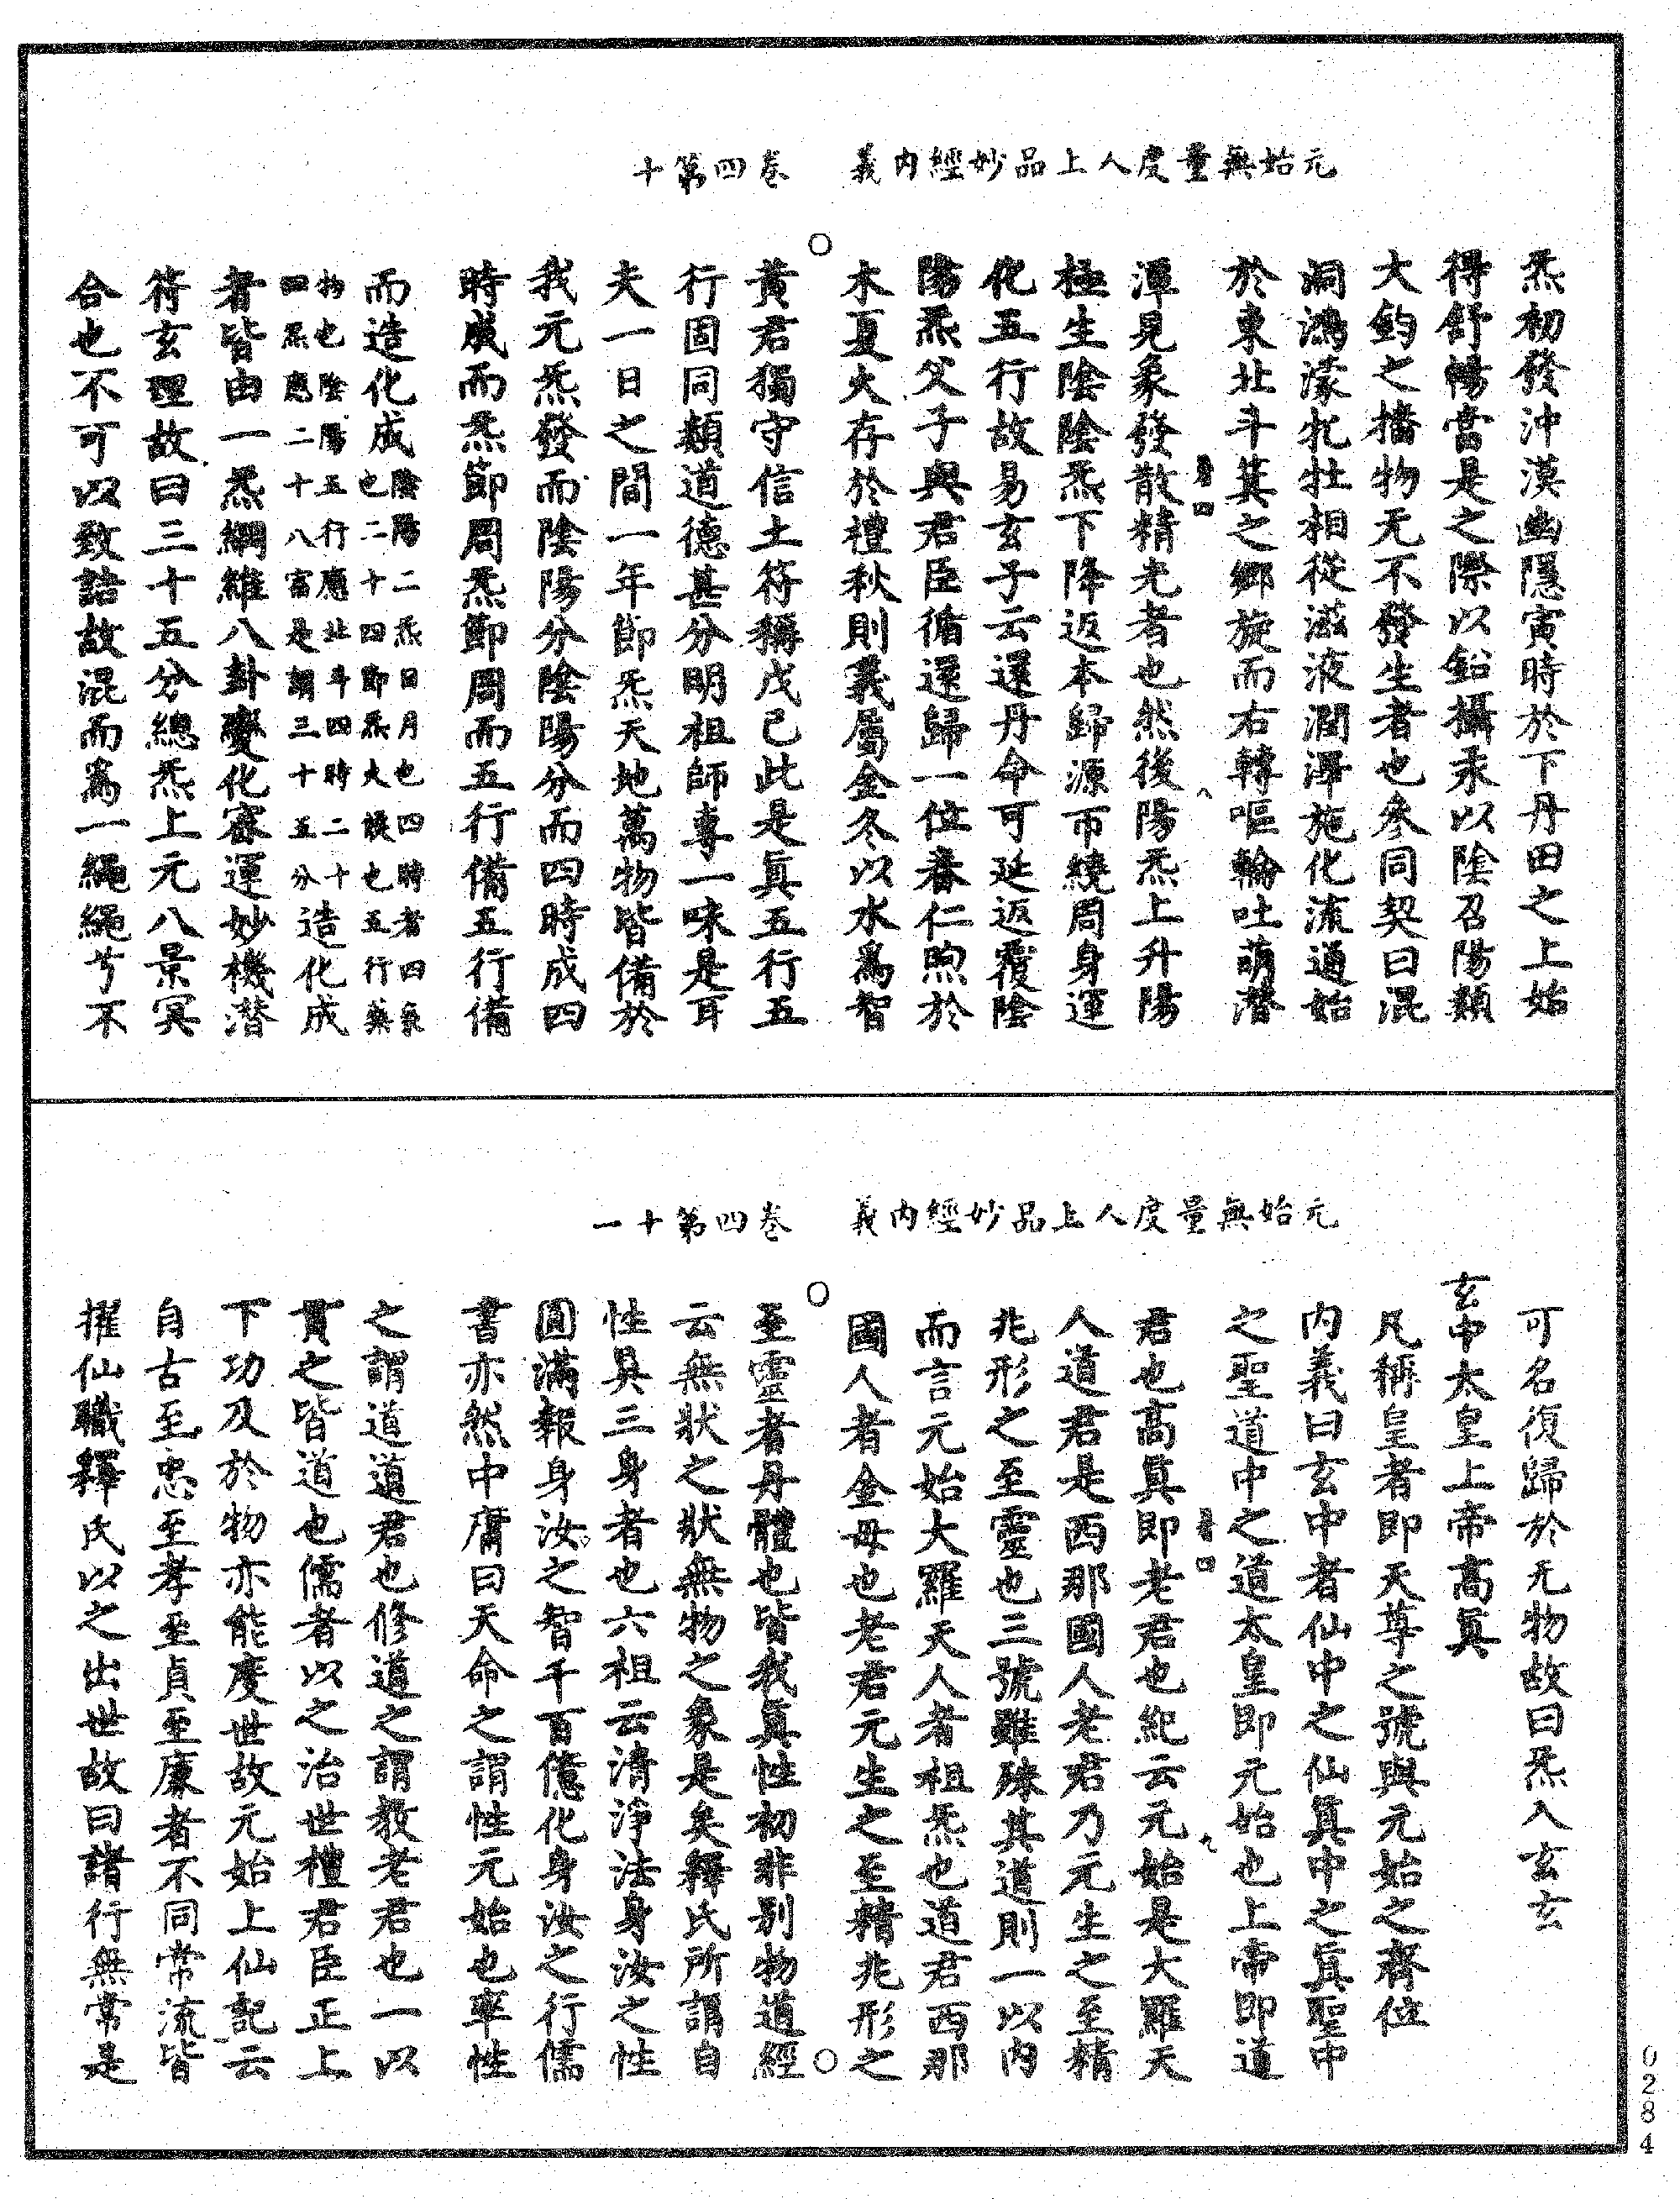 元始無量度人上品妙經內義　卷四第十
炁初發沖漠幽隱寅時於下丹田之上始
得舒暢當是之際以鉛攝汞以陰召陽類
大鈞之播物无不發生者也參同契曰混
洞鴻濛牝牡相從滋液潤澤施化流通始
於東北斗箕之鄉旋而右轉嘔輪吐萌潛
渾見象發散精光者也然後陽炁上升陽
極生陰陰炁下降返本歸源帀繞周身運
化五行故易玄子云還丹命可延返覆陰
陽炁父子與君臣循還歸一位春仁煦於
木夏火存於禮秋則義屬金冬以水為智
黃君獨守信土符稱戊己此是真五行五
行固同類道德甚分明祖師專一味是耳
夫一日之間一年節炁天地萬物皆備於
我元炁發而陰陽分陰陽分而四時成四
時成而炁節周炁節周而五行備五行備
而造化成陰陽二炁日月也四時者四氣也二十四節炁火候也五行藥
物也陰陽五行應北斗四時二十四炁應二十八宿是謂三十五分造化成
者皆由一炁綱維八卦變化密運妙機潛
符玄理故曰三十五分總炁上元八景冥
合也不可以致詰故混而為一繩繩兮不
元始無量度人上品妙經內義　卷四第十一
可名復歸於无物故曰炁入玄玄
玄中太皇上帝高真
凡稱皇者即天尊之號與元始之齊位
內義曰玄中者仙中之仙真中之真聖中
之聖道中之道太皇即元始也上帝即道
君也高真即老君也紀云元始是大羅天
人道君是西那國人老君乃元生之至精
兆形之至靈也三號雖殊其道則一以內
而言元始大羅天人者祖炁也道君西那
國人者金母也老君元生之至精兆形之
至靈者丹體也皆我真性初非別物道經
云無狀之狀無物之象是矣釋氏所謂自
性具三身者也六祖云清淨法身汝之性
圓滿報身汝之智千百億化身汝之行儒
書亦然中庸曰天命之謂性元始也率性
之謂道道君也修道之謂教老君也一以
貫之皆道也儒者以之治世禮君臣正上
下功及於物亦能度世故元始上仙記云
自古至忠至孝至貞至廉者不同常流皆
擢仙職釋氏以之出世故曰諸行無常是
0284